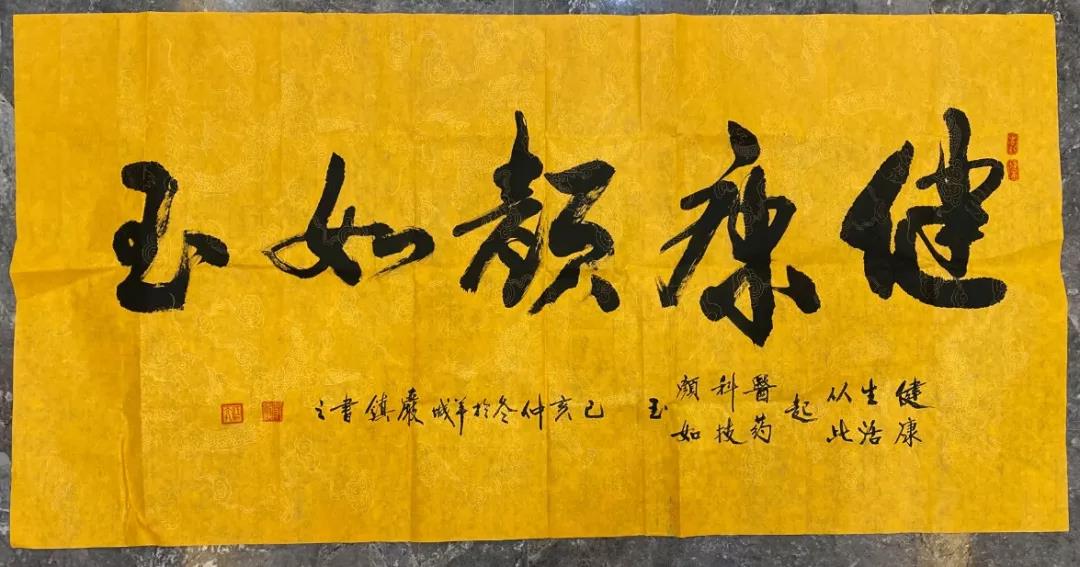 健康顏如玉
健康
生活
从此
起
醫药
科技
顏如
玉
己亥仲冬於羊城嚴鎮書之